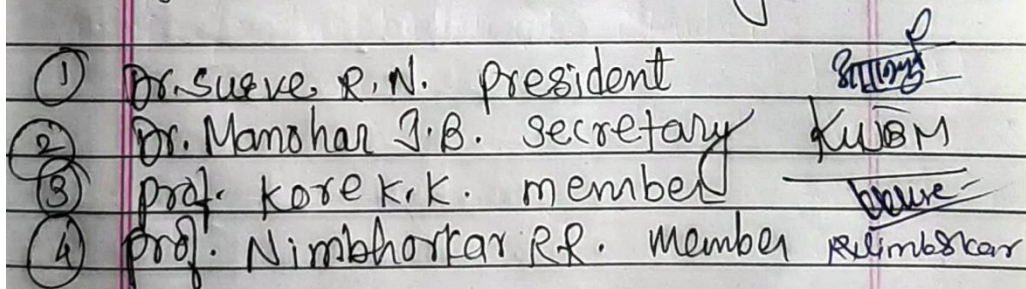 ① Dr. Surve. R.N. president
② Dr. Manohar J.B. secretary
③ prof. Kore K.K. member
④ Prof. Nimbhorkar R.R. member RNimbhorkar